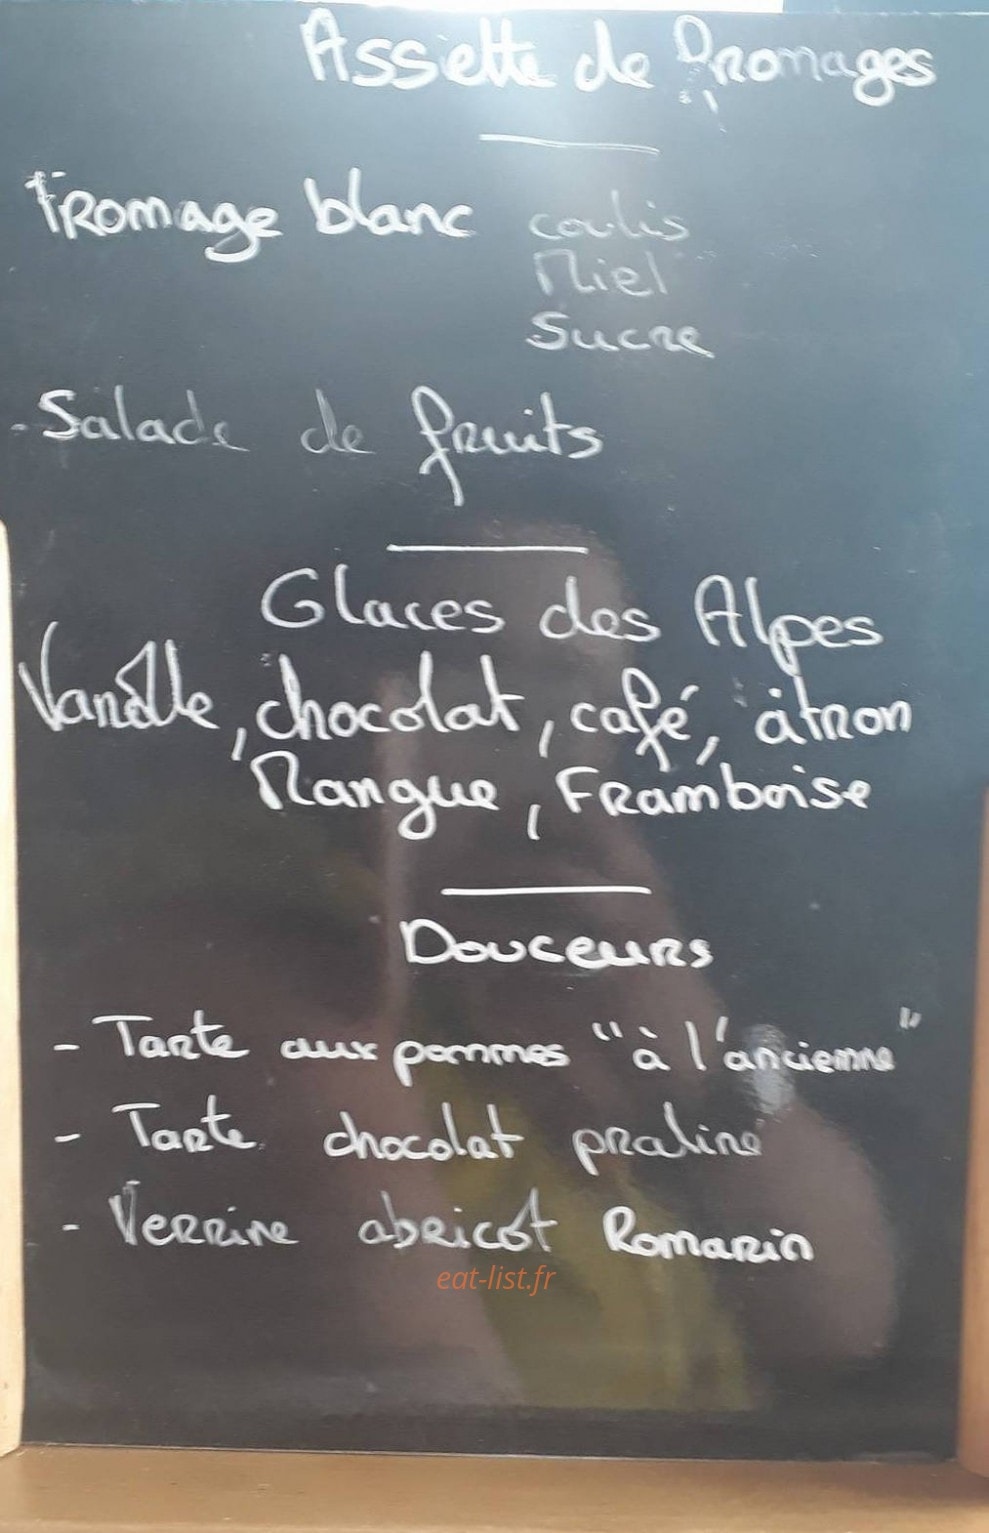 Assiette de Fromages
Fromage blanc coulis
Miel
Sucre
- Salade de fruits
Glaces des Alpes
Vanille, chocolat, café, citron
Mangue, Framboise
Douceurs
- Tarte aux pommes "à l'ancienne"
- Tarte chocolat praliné
- Verrine abricot Romarin
eat-list.fr